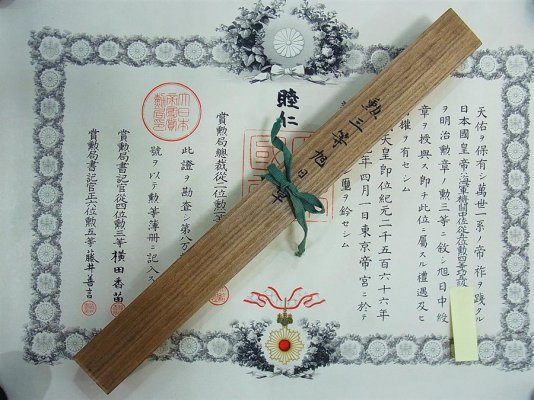 天佑ヲ保有シ萬世一系ノ帝祚ヲ踐タル
日本國皇帝ハ海軍機關中佐從五位勳四等功
ヲ明治勳章ノ勳三等ニ敘シ旭日中綬
章ヲ授與ス即チ此位ニ屬スル禮遇及ヒ
權ヲ有セシム
天皇即位紀元二千五百六十六年
年四月一日東京帝宮ニ於テ
璽ヲ鈐セシム
睦仁
勲三等旭日
大日本帝國賞勲局印
賞勲局總裁從二位勲
此證ヲ勘査シ第八万
號ヲ以テ勲等簿冊ニ記入ス
賞勲局書記官從四位勲三等橫田香苗
賞勲局書記官正六位勲五等藤井善言